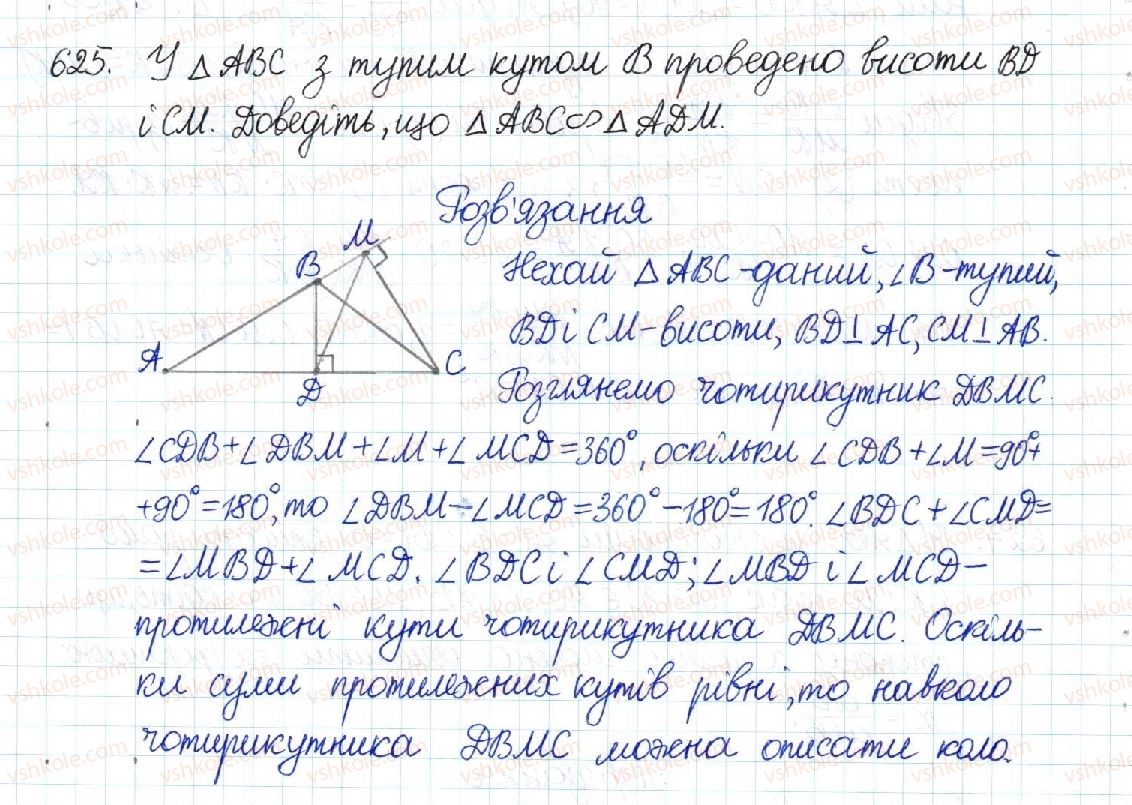 625. У △ABC з тупим кутом B проведено висоти BD
і CM. Доведіть, що △ABC∽△ADM.
Розв'язання
M
B
A
D
C
Нехай △ABC-даний, ∠B-тупий,
BD і CM-висоти, BD⊥AC, CM⊥AB.
Розглянемо чотирикутник DBMC.
∠CDB+∠DBM+∠M+∠MCD=360°, оскільки ∠CDB+∠M=90°+
+90°=180°, то ∠DBM-∠MCD=360°-180°=180°. ∠BDC+∠CMD=
=∠MBD+∠MCD. ∠BDC і ∠CMD; ∠MBD і ∠MCD-
протилежні кути чотирикутника DBMC. Оскіль-
ки суми протилежних кутів рівні, то навколо
чотирикутника DBMC можна описати коло.
vshkole.com